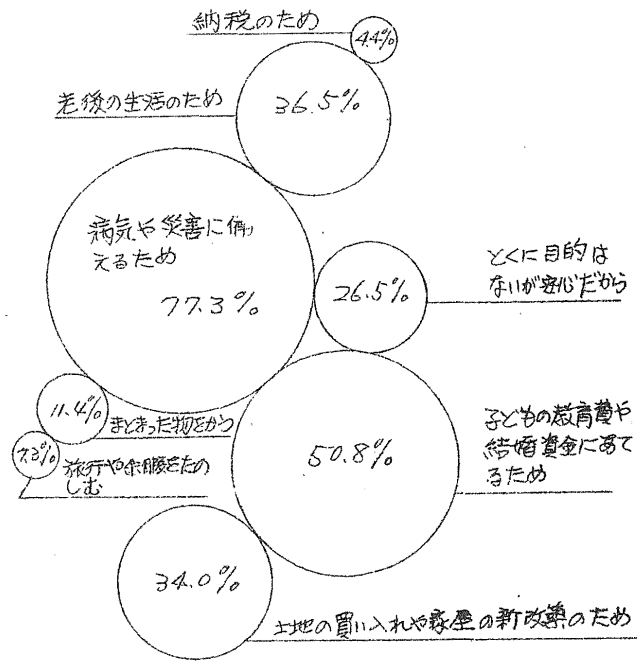 納税のため
4.4%
老後の生活のため
36.5%
病気や災害に備
えるため
77.3%
とくに目的は
ないが安心だから
26.5%
11.4%
まとまった物をかう
7.3%
旅行や余暇をたの
しむ
50.8%
子どもの教育費や
結婚資金にあて
るため
34.0%
土地の買い入れや家屋の新改築のため